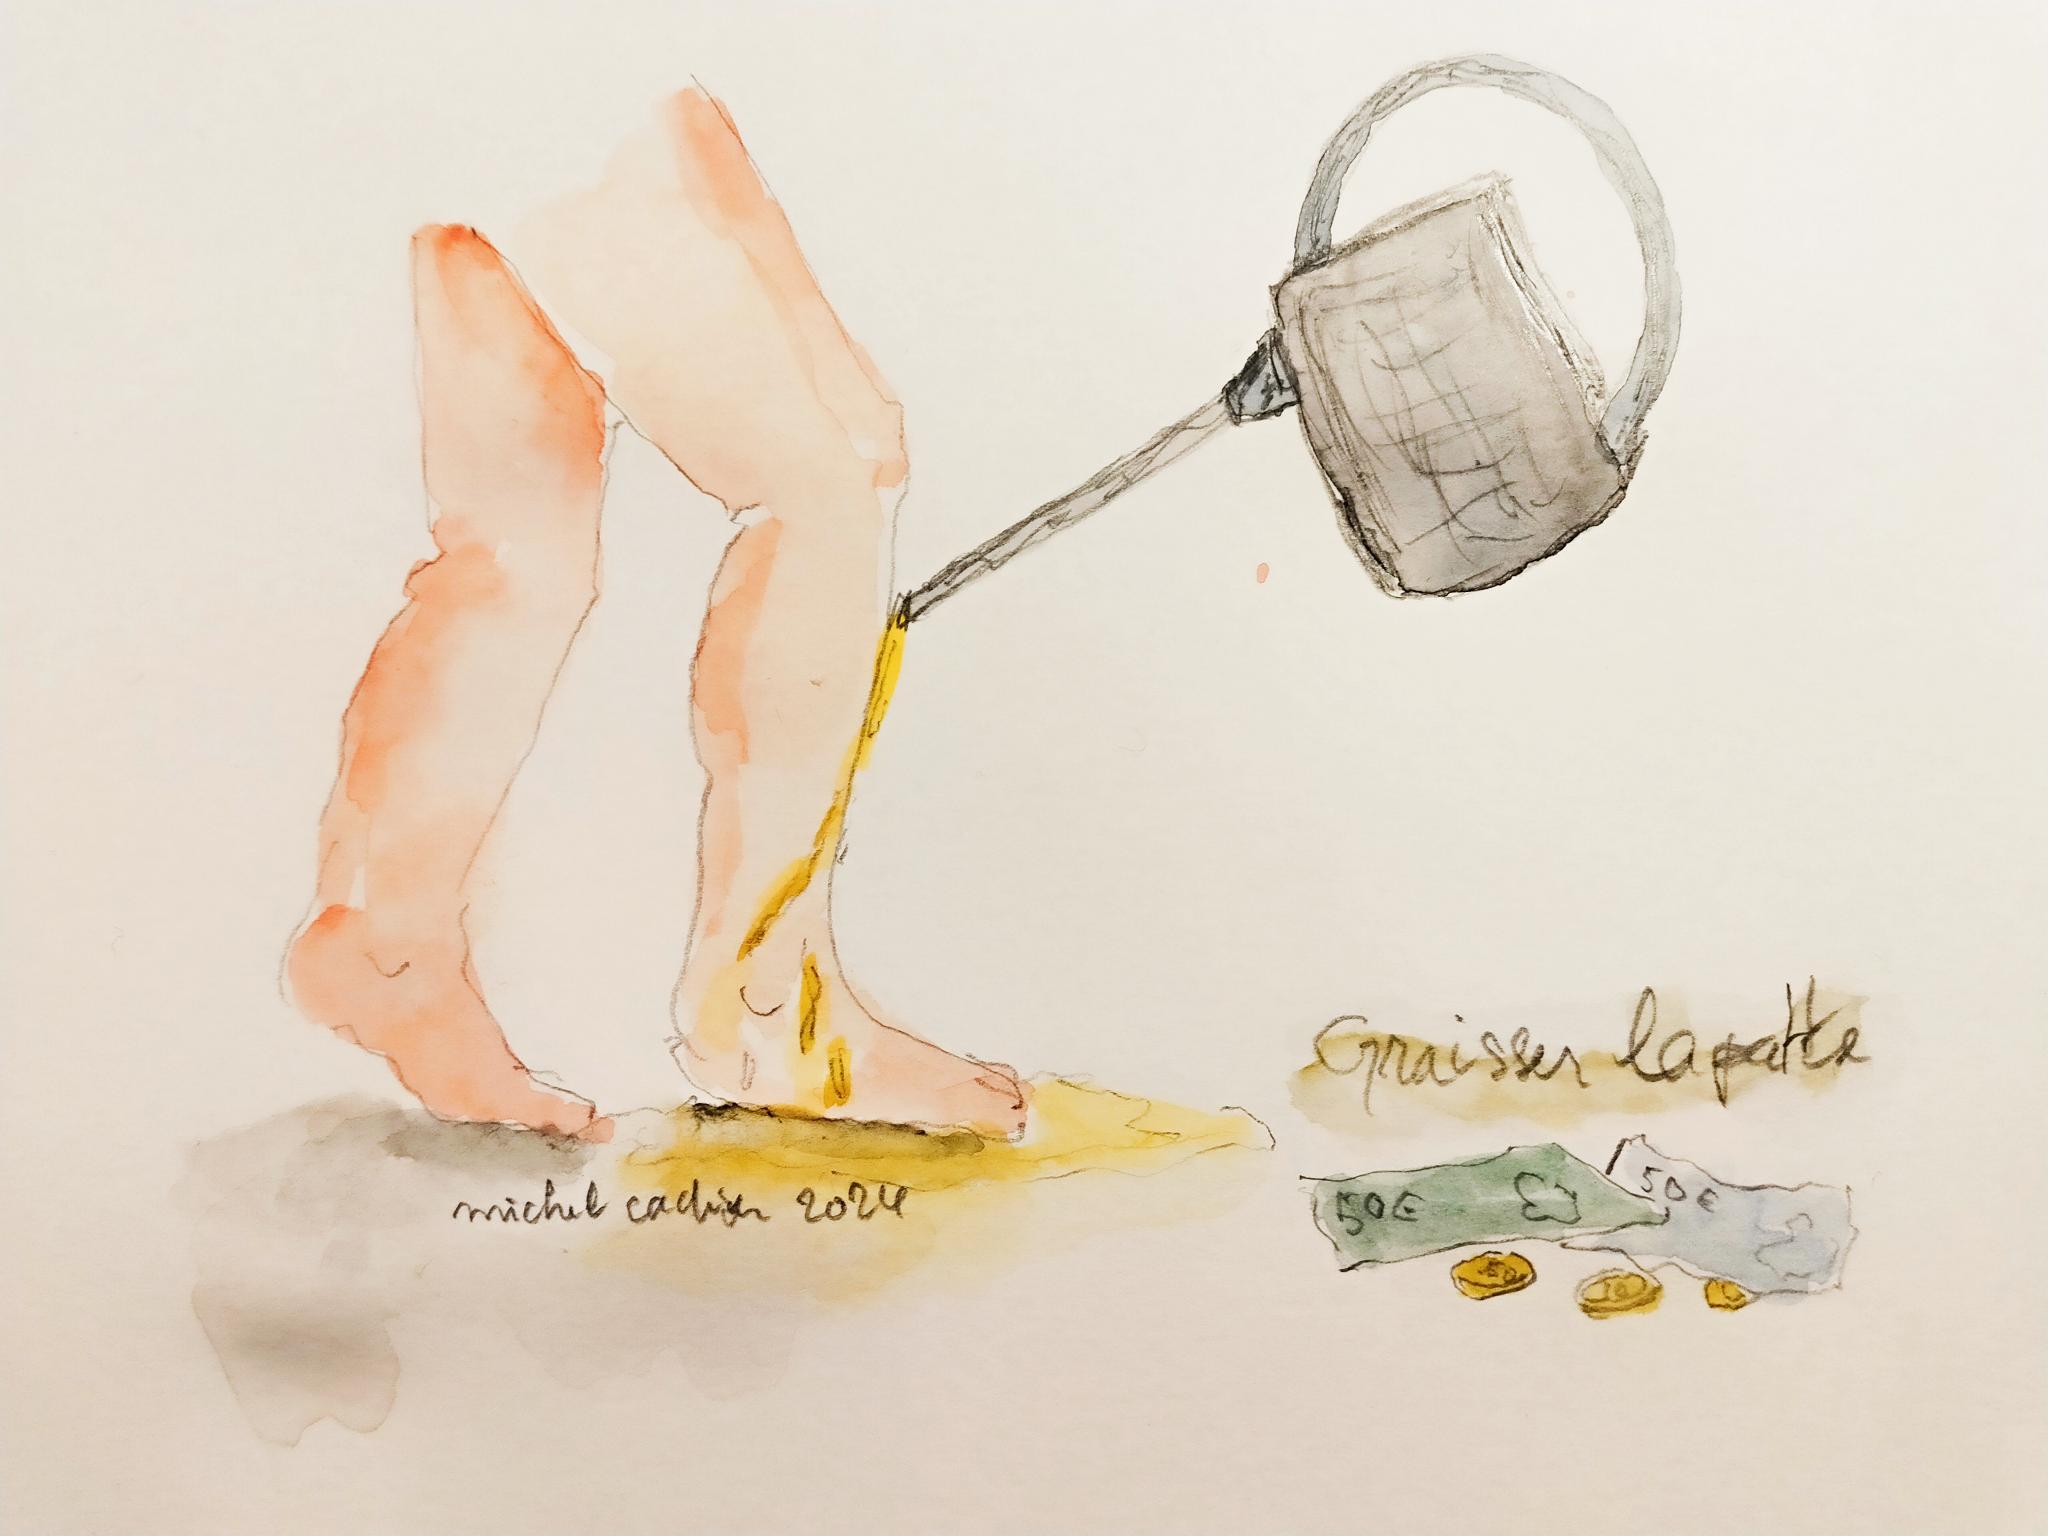 Graisser la patte
50€
50€
michel cadier 2024
50
10